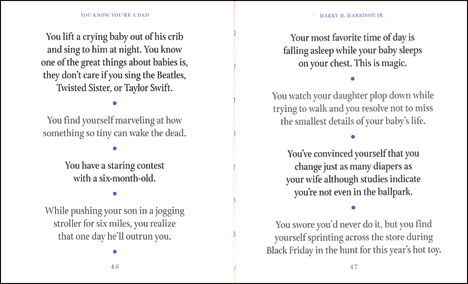 YOU KNOW YOU'RE A DAD
You lift a crying baby out of his crib
and sing to him at night. You know
one of the great things about babies is,
they don't care if you sing the Beatles,
Twisted Sister, or Taylor Swift.
You find yourself marveling at how
something so tiny can wake the dead.
You have a staring contest
with a six-month-old.
While pushing your son in a jogging
stroller for six miles, you realize
that one day he'll outrun you.
46
HARRY H. HARRISON JR.
Your most favorite time of day is
falling asleep while your baby sleeps
on your chest. This is magic.
You watch your daughter plop down while
trying to walk and you resolve not to miss
the smallest details of your baby's life.
You've convinced yourself that you
change just as many diapers as
your wife although studies indicate
you're not even in the ballpark.
You swore you'd never do it, but you find
yourself sprinting across the store during
Black Friday in the hunt for this year's hot toy.
47